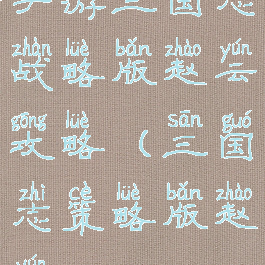 手游三国志
zhàn lüè bǎn zhào yún
战略版赵云
gōng lüè sān guó
攻略（三国
zhì cè lüè bǎn zhào
志策略版赵
yún